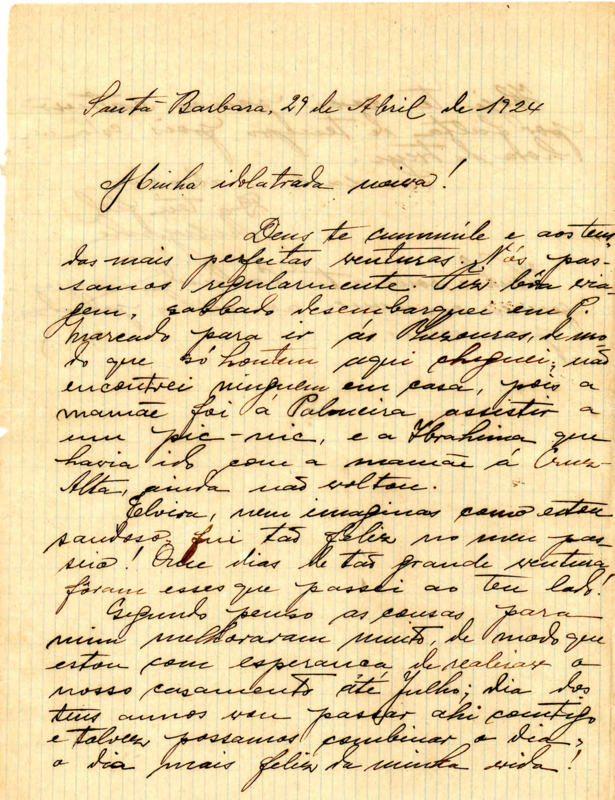 Santa Barbara, 29 de Abril de 1924
Minha idolatrada noiva!
Deus te cummúle e aos teus
das mais perfeitas venturas. Nós pas-
samos regularmente. Fiz bôa via
gem, sabbado desembarquei em P.
Marcado para ir ás de mo-
do que só hontem aqui cheguei; não
encontrei ninguem em casa, pois a
mamãe foi á Palmeira assistir a
um pic-nic, e a Ibrahima que
havia ido com a mamãe á Cruz-
Alta, ainda não voltou.
Elvira, nem imaginas como estou
saudoso, fui tão feliz no meu pas
seio! Que dias de tão grande ventura
fôram esses que passei ao teu lado!
Segundo penso as cousas para
mim melhoraram muito, de modo que
estou com esperança de realisar o
nosso casamento até Julho; dia dos
teus annos vou passar ahi comtigo
e talvez possamos combinar o dia,
o dia mais feliz da minha vida!